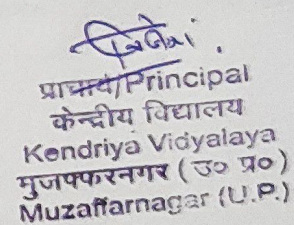 प्राचार्य/Principal
केन्द्रीय विद्यालय
Kendriya Vidyalaya
मुजफ्फरनगर (उ० प्र०)
Muzaffarnagar (U.P.)